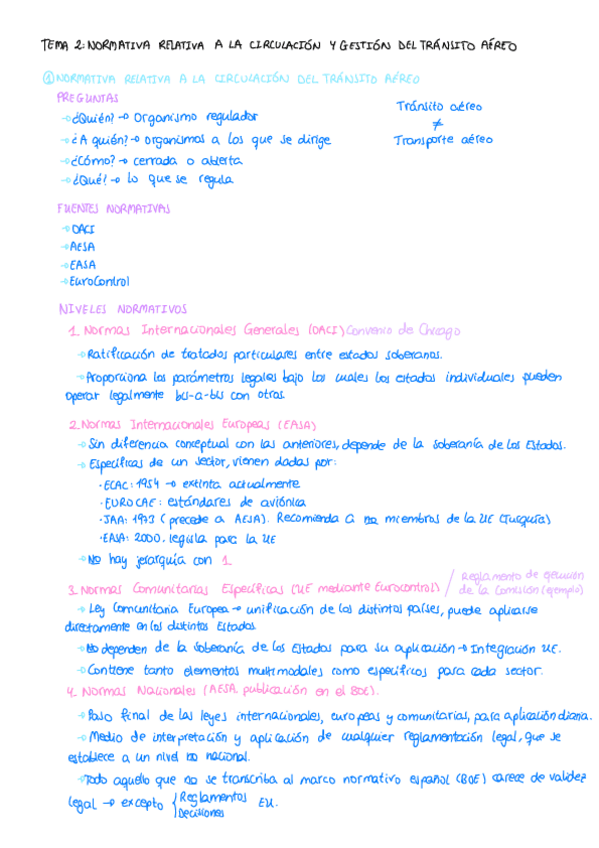 TEMA 2: NORMATIVA RELATIVA A LA CIRCULACIÓN Y GESTIÓN DEL TRÁNSITO AÉREO
① NORMATIVA RELATIVA A LA CIRCULACIÓN DEL TRÁNSITO AÉREO
PREGUNTAS
→ ¿Quién? → Organismo regulador
→ ¿A quién? → organismos a los que se dirige
→ ¿Cómo? → cerrada o abierta
→ ¿Qué? → lo que se regula
Tránsito aéreo
≠
Transporte aéreo
FUENTES NORMATIVAS
→ OACI
→ AESA
→ EASA
→ EuroControl
NIVELES NORMATIVOS
1. Normas Internacionales Generales (OACI) Convenio de Chicago
→ Ratificación de tratados particulares entre estados soberanos.
→ Proporciona los parámetros legales bajo los cuales los estados individuales pueden
operar legalmente bis-a-bis con otros.
2. Normas Internacionales Europeas (EASA)
→ Sin diferencia conceptual con las anteriores, depende de la soberanía de los Estados.
→ Específicas de un sector, vienen dadas por:
· ECAC: 1954 → extinta actualmente
· EUROCAE: estándares de aviónica
· JAA: 1973 (precede a AESA). Recomienda a no miembros de la UE (Turquía)
· EASA: 2000. legisla para la UE
→ No hay jerarquía con 1.
3. Normas Comunitarias Específicas (UE mediante Eurocontrol) / Reglamento de ejecución
de la Comisión (ejemplo)
→ Ley Comunitaria Europea → unificación de los distintos países, puede aplicarse
directamente en los distintos Estados
→ No dependen de la soberanía de los Estados para su aplicación → Integración UE.
→ Contiene tanto elementos multimodales como específicos para cada sector.
4. Normas Nacionales (AESA publicación en el BOE).
→ Paso final de las leyes internacionales, europeas y comunitarias, para aplicación diaria.
→ Medio de interpretación y aplicación de cualquier reglamentación legal, que se
establece a un nivel no nacional.
→ Todo aquello que no se transcriba al marco normativo español (BOE) carece de validez
legal → excepto { Reglamentos EU.
Decisiones